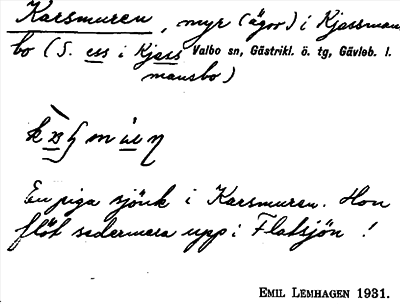 Karsmuren, myr (ägor) i Kjessmans-
bo (S. ess i Kjess Valbo sn, Gästrikl. ö. tg, Gävleb. l.
mansbo)
En piga sjönk i Karsmuren. Hon
flöt sedermera upp i Flatsjön!
EMIL LEMHAGEN 1931.